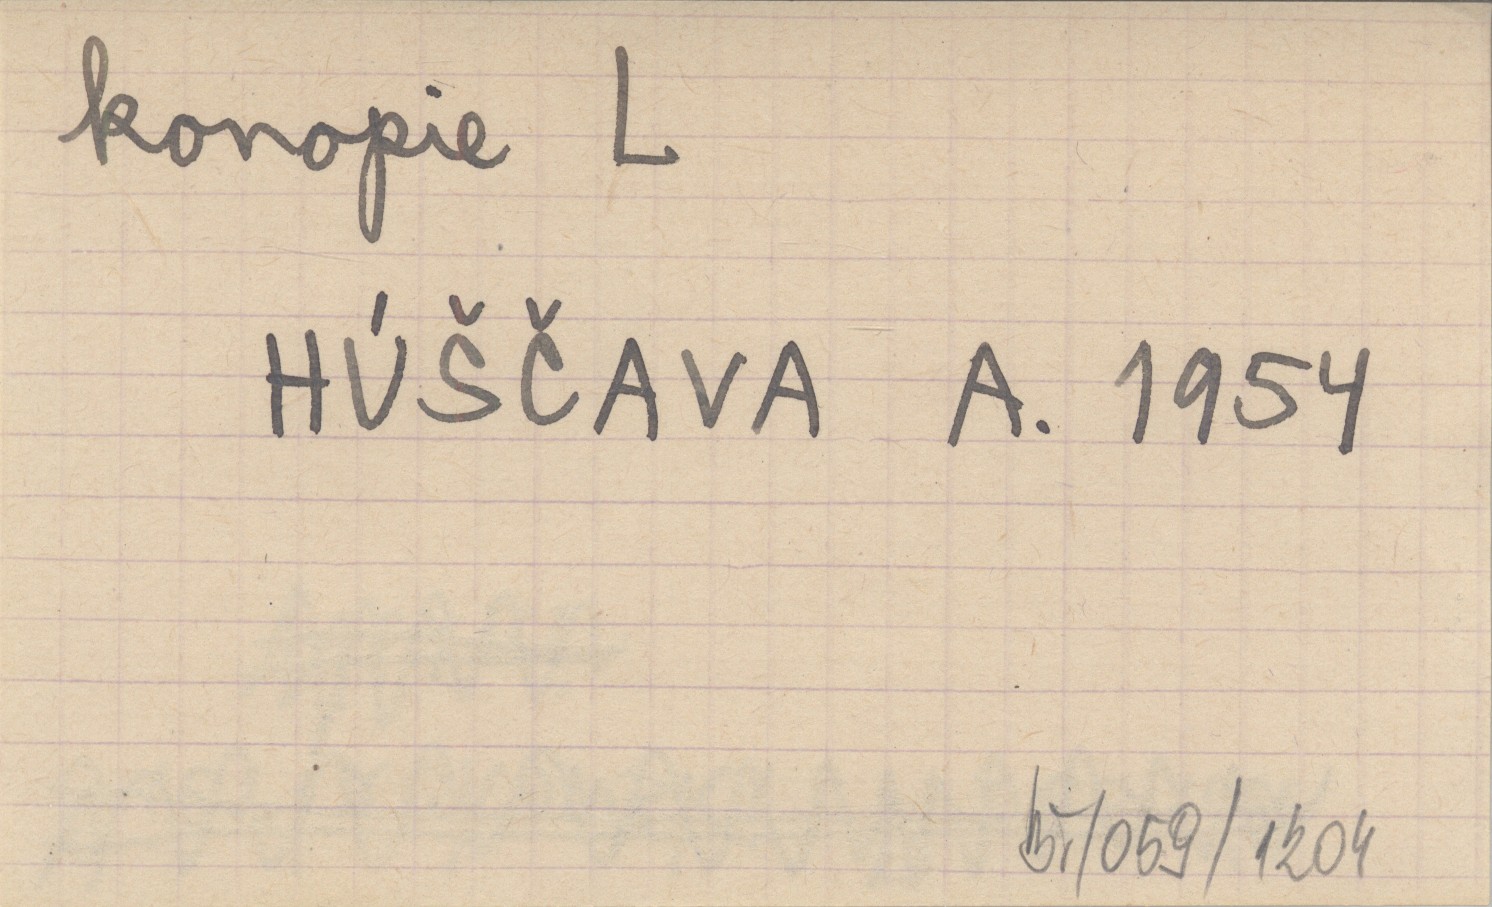 konopie L
HÚŠČAVA A. 1954
/059/1204